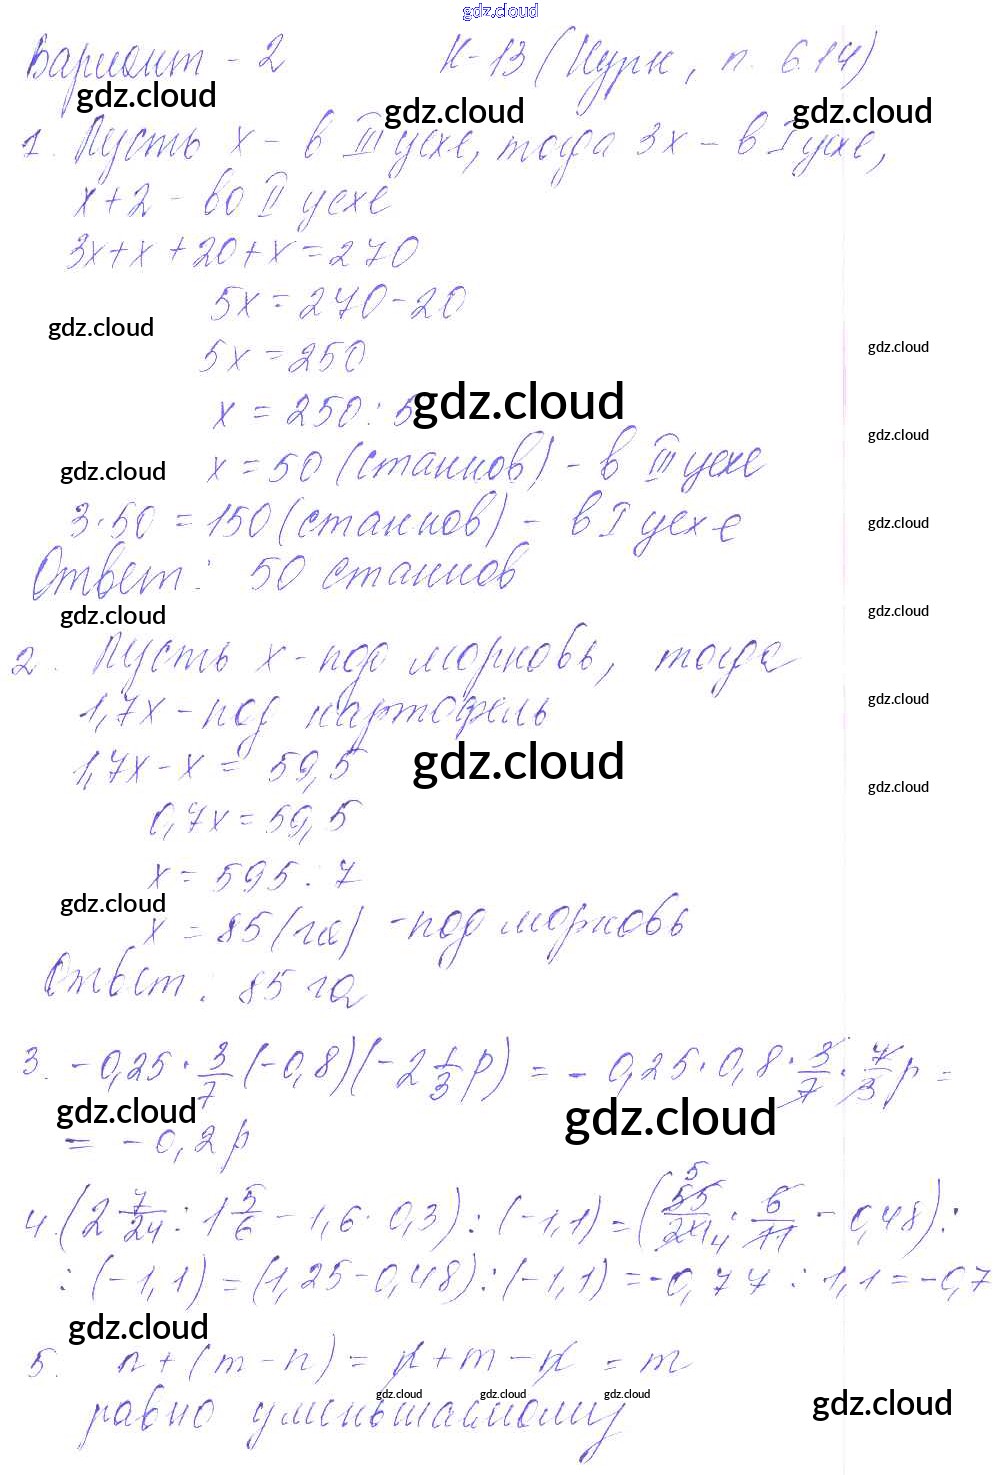 gdz.cloud
Вариант - 2 К-13 (Нурк, п. 6.14)
gdz.cloud gdz.cloud gdz.cloud
1. Пусть x - в III цехе, тогда 3x - в I цехе,
x + 2 - во II цехе
3x + x + 20 + x = 270
5x = 270 - 20
gdz.cloud gdz.cloud
5x = 250
x = 250 : 5 gdz.cloud
gdz.cloud
gdz.cloud x = 50 (станков) - в III цехе
3 · 50 = 150 (станков) - в I цехе
gdz.cloud
Ответ: 50 станков
gdz.cloud gdz.cloud
2. Пусть x - под морковь, тогда
1,7x - под картофель
gdz.cloud
1,7x - x = 59,5 gdz.cloud
gdz.cloud
0,7x = 59,5
x = 595 : 7
gdz.cloud x = 85 (га) - под морковь
Ответ: 85 га
3. -0,25 · 3/7 (-0,8)(-2 1/3 p) = -0,25 · 0,8 · 3/7 · 7/3 p =
gdz.cloud gdz.cloud
= -0,2p
4. (2 7/24 : 1 5/6 - 1,6 · 0,3) : (-1,1) = (55/24 · 6/11 - 0,48) :
5 4
: (-1,1) = (1,25 - 0,48) : (-1,1) = -0,77 : 1,1 = -0,7
gdz.cloud
5. n + (m - n) = n + m - n = m
gdz.cloud gdz.cloud gdz.cloud gdz.cloud
равно уменьшаемому